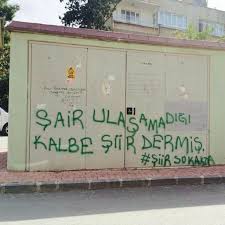 ŞAİR ULAŞAMADIĞI
KALBE ŞİİR DERMİŞ.
#ŞİİRSOKAKTA